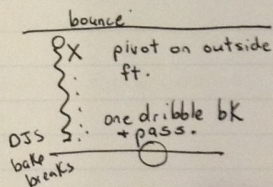 bounce
X pivot on outside
ft.
one dribble bk
+ pass.
DJS
bake
breaks